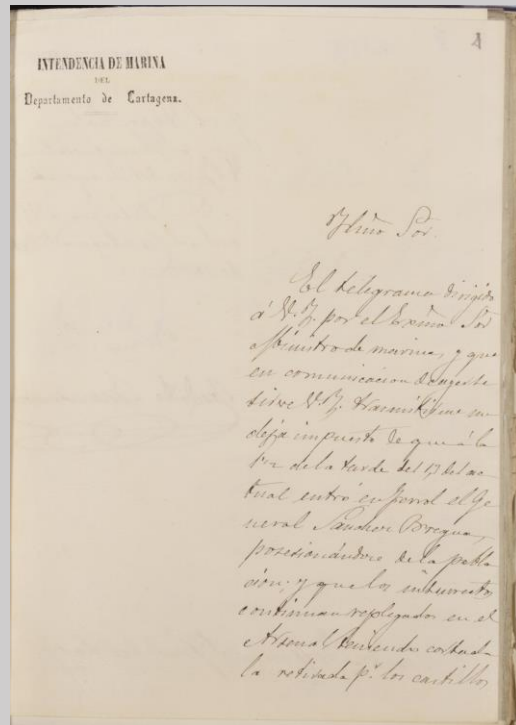 1
INTENDENCIA DE MARINA
DEL
Departamento de Cartagena.
Ylmo Sor.
El telegrama dirigido
á V.Y. por el Exmo Sor
Ministro de marina, y que
en comunicacion de ayer se
sirve V.Y. trasmitirme me
deja impuesto de que á la
1 1/2 de la tarde del 17 del ac-
tual entró en Ferrol el Ge
neral Sanchez Bregua,
posesionándose de la pobla
ción; y que los insurrectos
continuan replegados en el
Arsenal, teniendo cortada
la retirada pr. los castillos